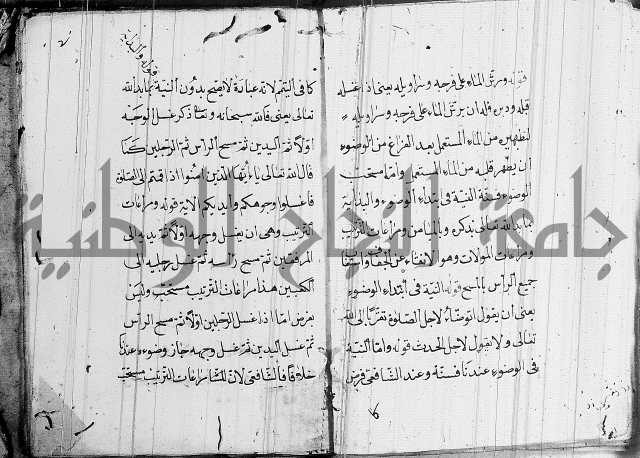 قوله ويرش الماء على فرجه وسراويله يعنى اذا غسله
قبله ودبره قله ان يرش الماء على فرجه وسراويله
لتطهيره من الماء المستعمل بعد الفراغ من الوضوء
ان يطهر قلبه من الماء المستعمل واما مستحب
الوضوء فستة النية فى ابتداء الوضوء والبداية
بما بدالله تعالى بذكره وبالميامن ومراعات الترتيب
ومراعات الموالات وهو
جميع الرأس بالمسح قوله النية فى ابتداء الوضوء
يعنى ان يقول اتوضأ لاجل الصلوة تقربا الى الله
تعالى ولا يقول لاجل الحدث قوله واما النية
فى الوضوء عندنا فسنة وعند الشافعى فرض
كما فى التيمم لانه عبادة لا يصح بدون النية بما بدالله
تعالى يعنى قالله سبحانه وتعا ذكر غسل الوجه
اولا ثم اليدين ثم مسح الرأس ثم الرجلين كما
قال الله تعالى يا ايها الذين امنوا اذا قمتم الى الصلوة
فاغسلوا وجوهكم وايديكم الاية قوله ومراعات
الترتيب وهى ان يغسل وجهه اولا ثم يديه الى
المرفقين ثم مسح رأسه ثم غسل رجليه الى
الكعبين هذا مراعات الترتيب مستحب وليس
بفرض اما اذا غسل الرجلين اولا ثم مسح الرأس
ثم غسل اليدين ثم غسل وجهه جاز وضوءه عندنا
خلافا للشافعى لان مراعات الترتيب مستحب
قوله والبداية
جامعة النجاح الوطنية